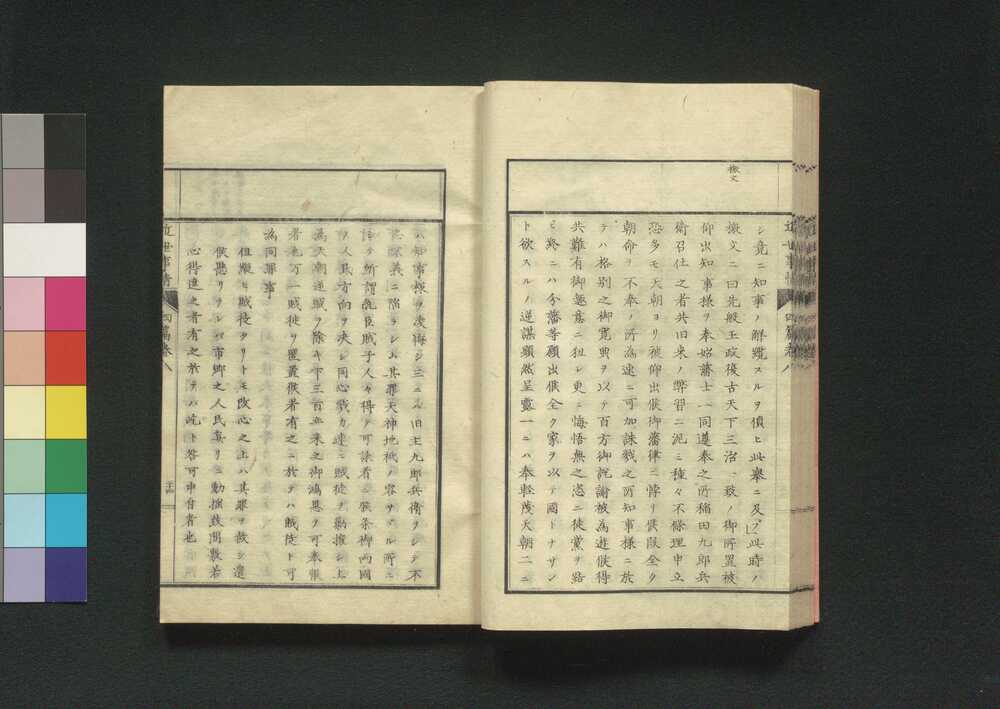 檄文
シ竟ニ知事ノ解纜スルヲ偵ヒ此擧ニ及フ此時ノ
檄文ニ曰先般王政復古天下三治一致ノ御所置被
仰出知事様ヲ奉始藩士一同遵奉之所稲田九郎兵
衛召仕之者共旧来ノ弊習ニ泥ミ種々不條理申立
恐多モ天朝ヨリ被仰出候御藩律ニ悖リ候段全ク
朝命ヲ不奉ノ所為速ニ可加誅戮之所知事様ニ於
テハ格別之御寛典ヲ以テ百方御説諭被為遊候得
共難有御趣意ニ狃レ更ニ悔悟無之恣ニ徒黨ヲ路
ヒ終ニハ分藩等願出候全ク家ヲ以テ國トナサン
ト欲スルノ逆謀顕然呈露一ニハ奉軽蔑天朝二ニ
ハ知事様ヲ凌侮シ三ニハ旧主九郎兵衛ヲシテ不
忠不義ニ陥ラシム其罪天神地祇ノ容サヾル所ニ
シテ所謂乱臣賊子人々得テ可誅者ニ候条御両國
ノ人民方向ヲ決シ同心戮力速ニ賊徒ヲ勦撲シ上
為天朝逆賊ヲ除キ下三百年来之御鴻恩ヲ可奉報
者也万一賊徒ヲ置置候者有之ニ於テハ賊徒ト可
為同罪事
但縦モ賊徒タリトモ改心之上ハ其罪ヲ赦シ遣
候愚リヲレバ市郷之人民妄リニ動揺致間敷若
心得違之者有之於テハ屹ト咎可申付者也
近世事情
四篇巻八
二十四
近世事情
四篇巻八